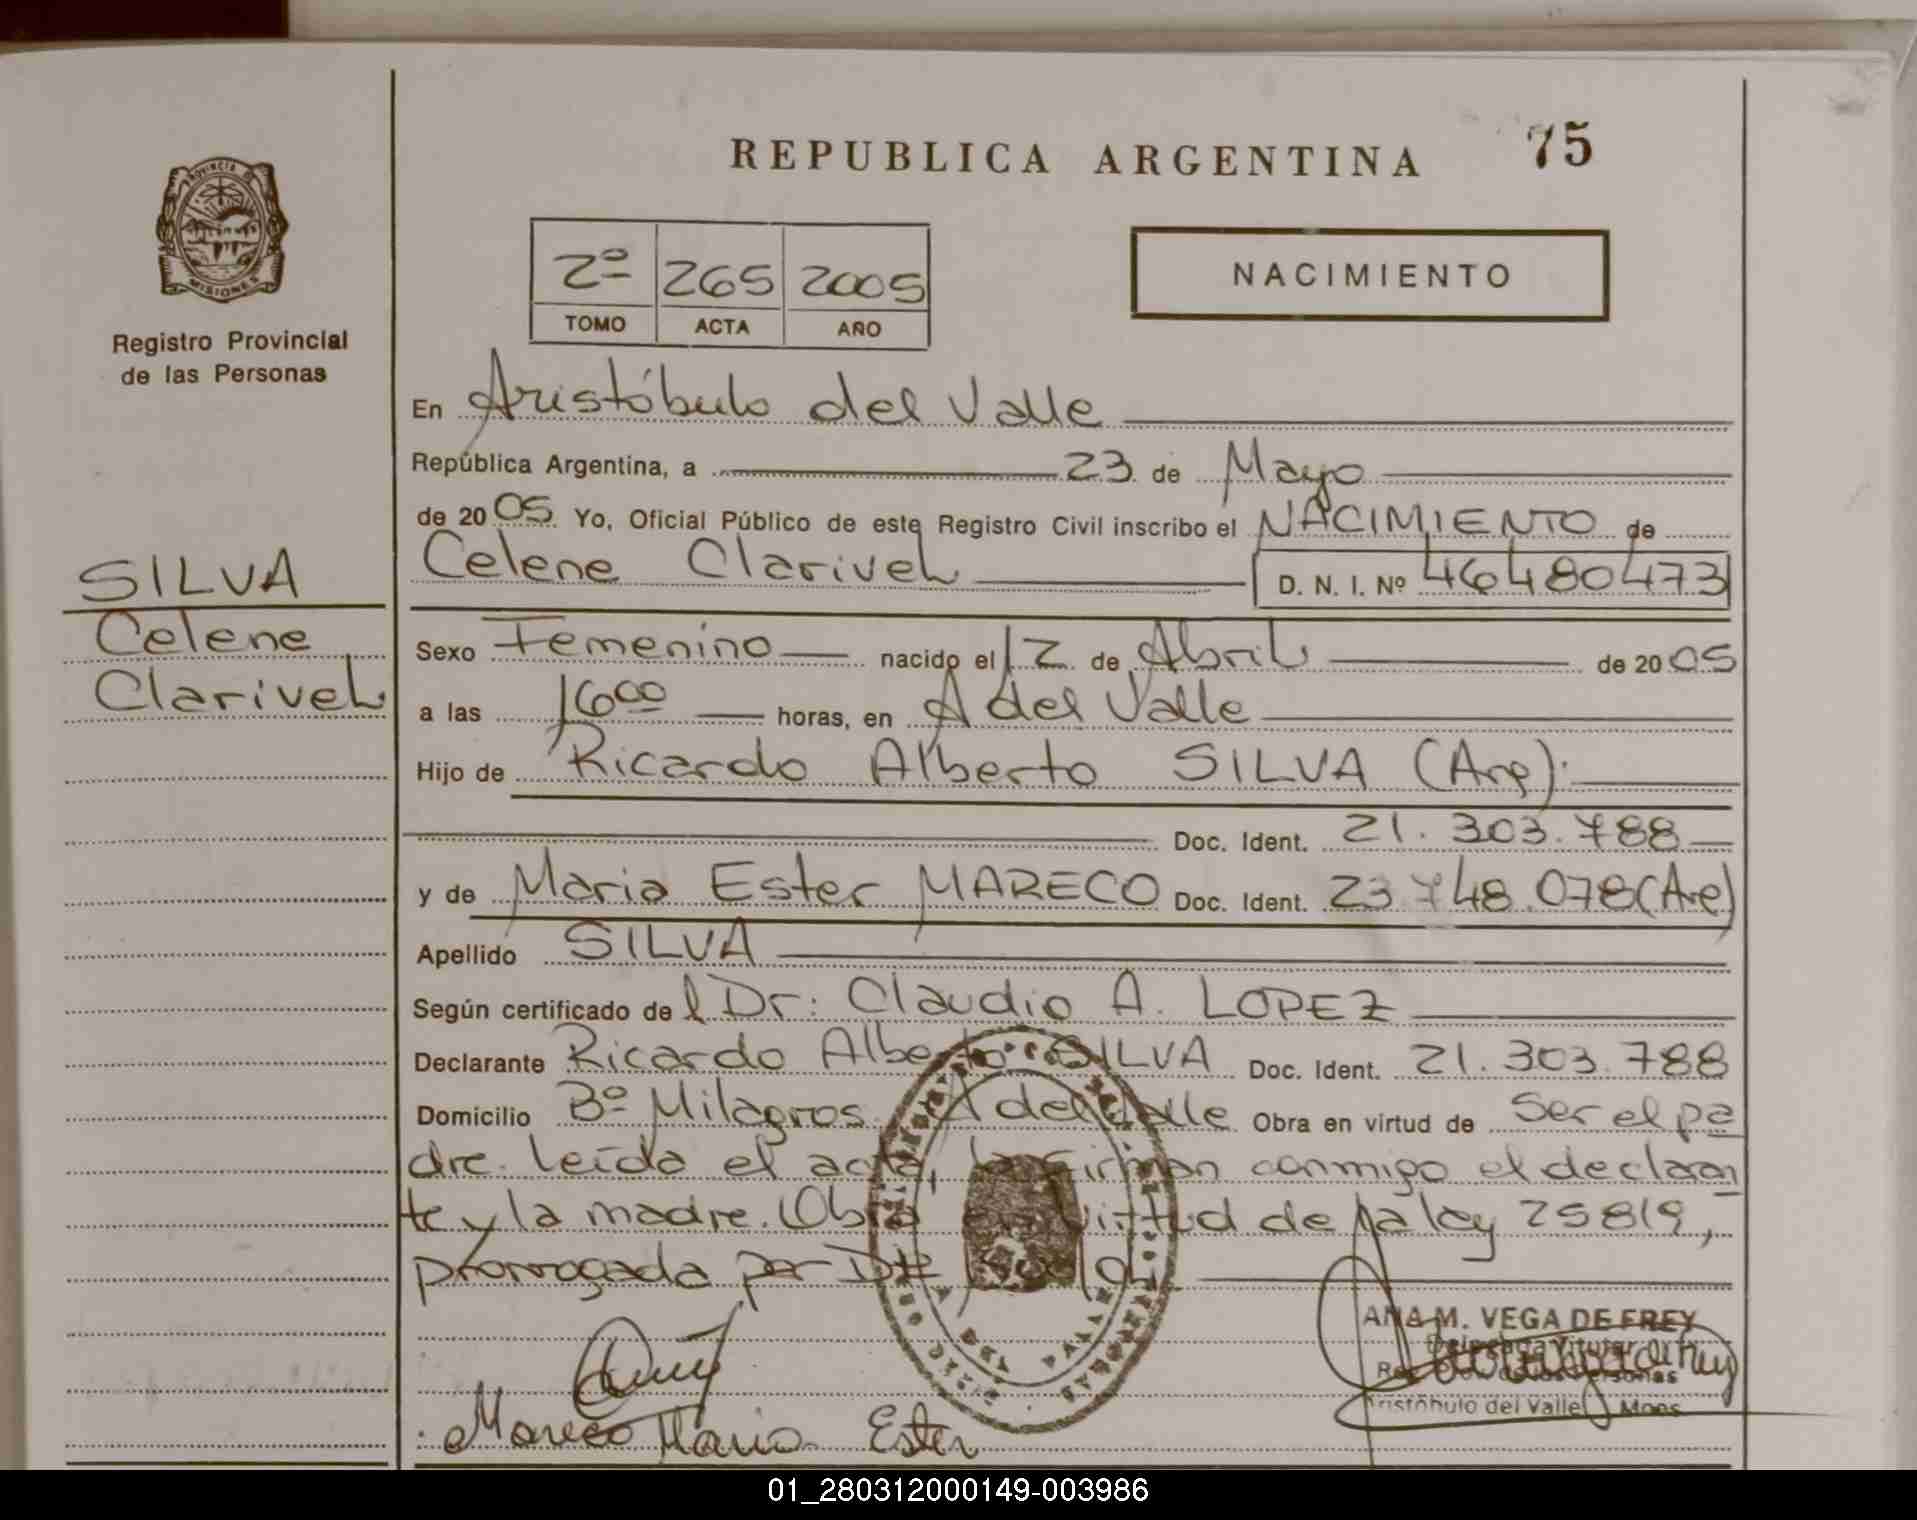 REPUBLICA ARGENTINA 75
PROVINCIA DE
MISIONES
Registro Provincial
de las Personas
2º 265 2005
TOMO ACTA AÑO
NACIMIENTO
En Aristóbulo del Valle
República Argentina, a 23 de Mayo
de 2005 Yo, Oficial Público de este Registro Civil inscribo el NACIMIENTO de
Celene Clarivel D. N. I. Nº 46480473
SILVA
Celene
Clarivel
Sexo Femenino nacido el 12 de Abril de 2005
a las 16 00 horas, en A del Valle
Hijo de Ricardo Alberto SILVA (Arg).
Doc. Ident. 21.303.788
y de Maria Ester MARECO Doc. Ident. 23.748.078 (Arg)
Apellido SILVA
Según certificado del Dr: Claudio A. LOPEZ
Declarante Ricardo Alberto SILVA Doc. Ident. 21.303.788
Domicilio Bº Milagros. A del Valle Obra en virtud de ser el pa
dre. leída el acta, la firman conmigo el declaran
te y la madre. Obra en virtud de la ley 25819,
prorrogada por
ANA M. VEGA DE FREY
Delegada Titular
Reg. Prov. de las Personas
Aristóbulo del Valle Mnes
Mareco Maria Ester
01_280312000149-003986